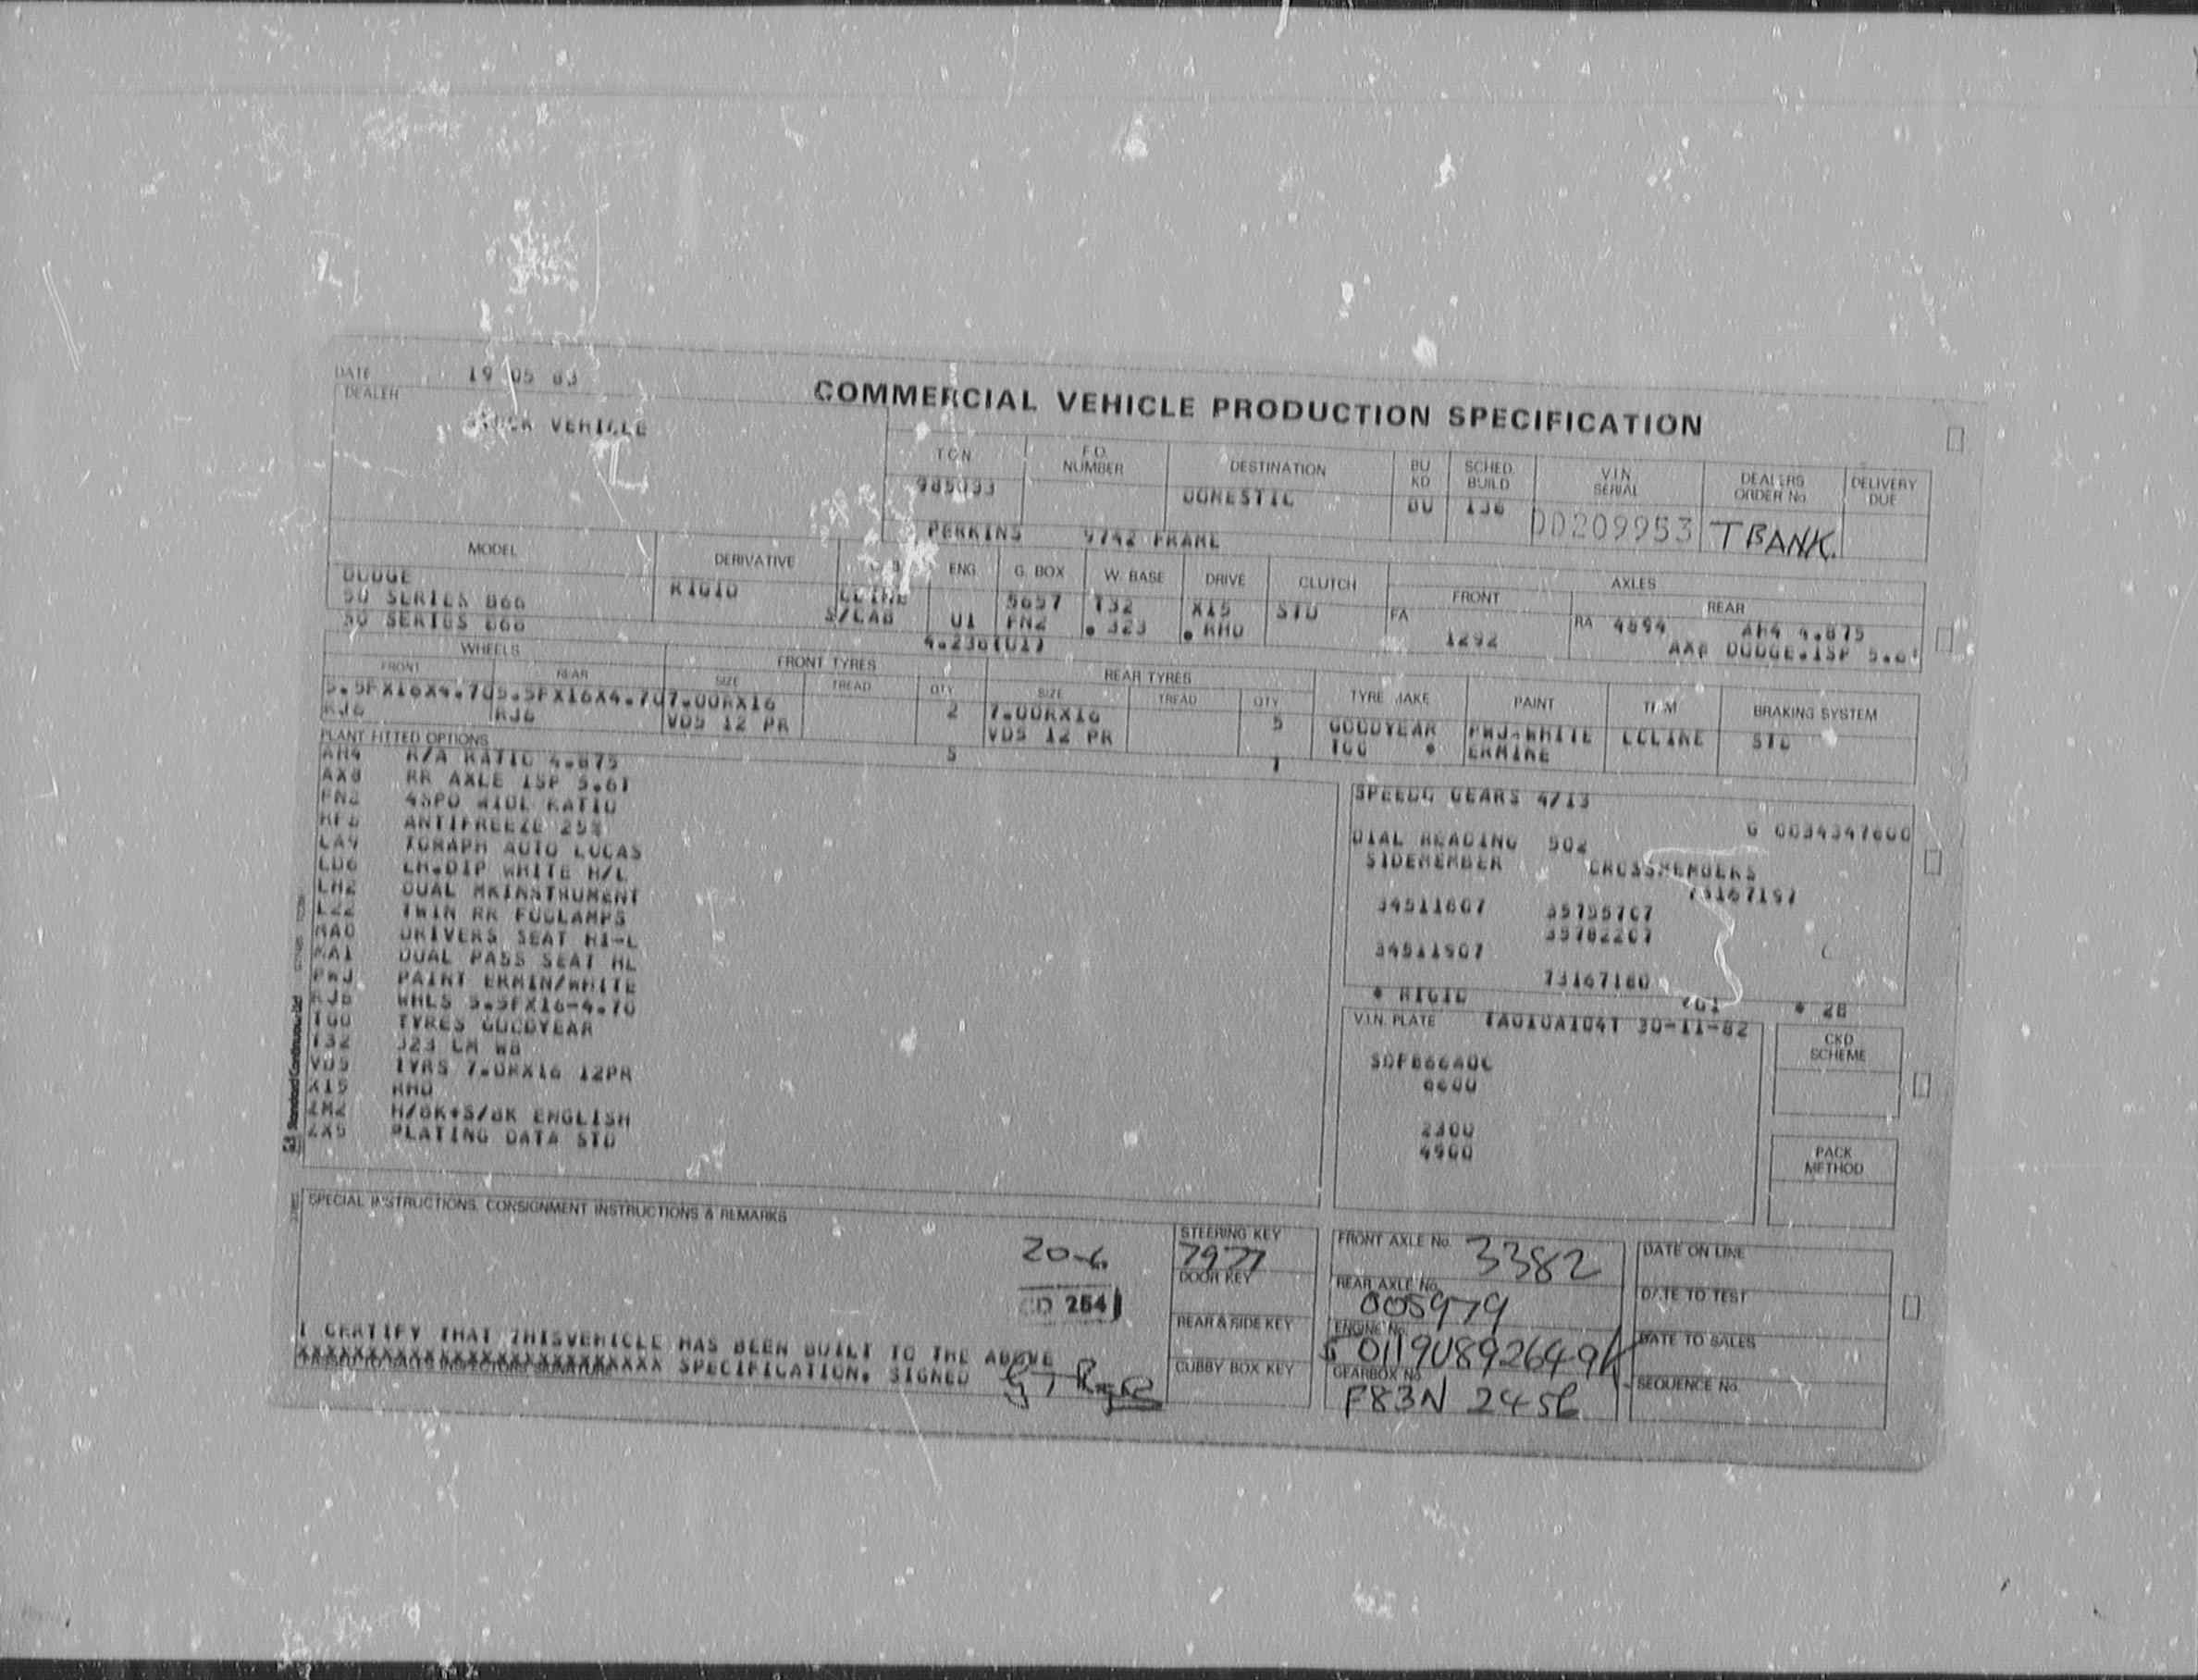 DATE 19 05 83
DEALER
VEHICLE
COMMERCIAL VEHICLE PRODUCTION SPECIFICATION
T.O.N. F.O. NUMBER DESTINATION BU KD SCHED. BUILD V.I.N. SERIAL DEALERS ORDER No DELIVERY DUE
985033 DOMESTIC BU 136 DD209953 TBANK.
PERKINS 9742 FRAME
MODEL DERIVATIVE ENG. G. BOX W. BASE DRIVE CLUTCH AXLES
FRONT REAR
DODGE RIGID 5657 T32 X15 STD FA RA 4894 AH4 4.875
50 SERIES B66 S/CAB U1 FN2 . 323 . RHD 1292 AX8 DODGE.1SP
50 SERIES B66 4.236(U1)
WHEELS FRONT TYRES REAR TYRES
FRONT REAR SIZE TREAD QTY SIZE TREAD QTY TYRE MAKE PAINT TRIM BRAKING SYSTEM
5.5FX16X4.70 5.5FX16X4.70 7.00RX16 2 7.00RX16 5 GOODYEAR PWJ-WHITE STD
RJ6 RJ6 VD5 12 PR VD5 12 PR TGO * ERMINE
PLANT FITTED OPTIONS 5 1
AH4 R/A RATIO 4.875
AX8 RR AXLE 1SP
FN2 4SPD WIDE RATIO
ANTIFREEZE 25%
LA9 TGRAPH AUTO LUCAS
LD6 LH.DIP WHITE H/L
LH2 DUAL MKINSTRUMENT
LZ2 TWIN RR FOGLAMPS
MA0 DRIVERS SEAT HI-L
MA1 DUAL PASS SEAT HL
PWJ PAINT ERMIN/WHITE
RJ6 WHLS 5.5FX16-4.70
TGO TYRES GOODYEAR
T32 323 CM WB
VD5 TYRS 7.0RX16 12PR
X15 RHD
ZM2 H/BK+S/BK ENGLISH
ZX5 PLATING DATA STD
SPEEDO GEARS 4/13
G 0034347600
DIAL READING 502
SIDEMEMBER CROSSMEMBERS
73167197
34511607 35755707
35782207
34511907
73167180
* RIGID 701 * 28
V.I.N. PLATE TA010A104T 30-11-82
6600
2300
4900
CKD SCHEME
PACK METHOD
Standard Continuous Ltd
SPECIAL INSTRUCTIONS, CONSIGNMENT INSTRUCTIONS & REMARKS
20-6
CD 254
I CERTIFY THAT THISVEHICLE HAS BEEN BUILT TO THE ABOVE
XXXXXXXXXXXXXXXXXXXXXXXXXX SPECIFICATION. SIGNED
STEERING KEY 7977
DOOR KEY
REAR & SIDE KEY
CUBBY BOX KEY
FRONT AXLE No. 3382
REAR AXLE No. 005979
ENGINE No.
GEARBOX No. F83N 2456
DATE ON LINE
DATE TO TEST
DATE TO SALES
SEQUENCE No.